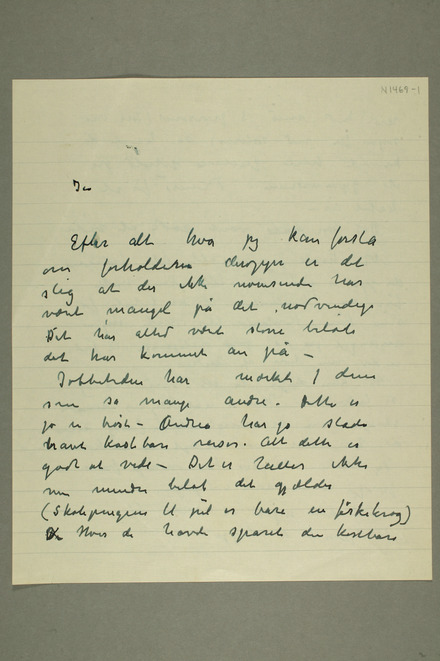 N1469-1
Efter alt hvad jeg kan forstå
om forholdene deroppe er det
slig at der ikke har
vært mangel på det nødvendige
Det har altid vært store beløb
det har kommet an på –
Jobbetiden har mærket
som så mange andre. Dette er
jo en trøst – Andrea har jo stadig
kostbare reiser. Alt dette er
godt at vide – Det er heller ikke
om mindre beløb det gjælder
(Skolepengene til jul er bare en )
Hvis de havde sparet den kostbare